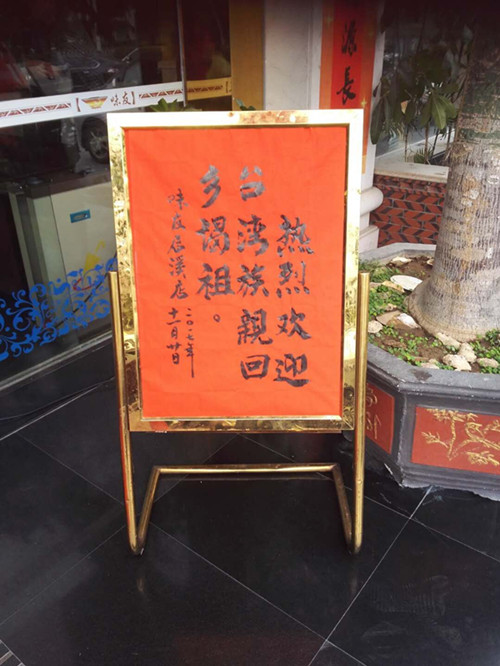 热烈欢迎
台湾族親回
乡谒祖。
味友后溪店
二〇一七年
十一月廿日
【味友】
源長